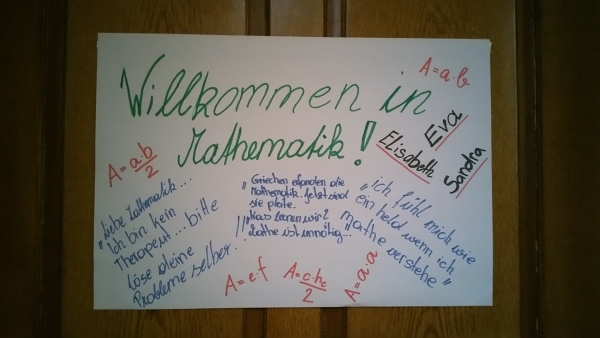 Willkommen in
Mathematik!
A=a·b
Eva
Elisabeth
Sandra
A=a·b/2
"Liebe Mathematik...
Ich bin kein
Therapeut... bitte
löse deine
Probleme selber!"
"Griechen erfanden die
Mathematik. Jetzt sind
sie pleite.
Was lernen wir?
Mathe ist unnötig..."
"ich fühl mich wie
ein held wenn ich
mathe verstehe"
A=e·f
A=c·hc/2
A=a·a